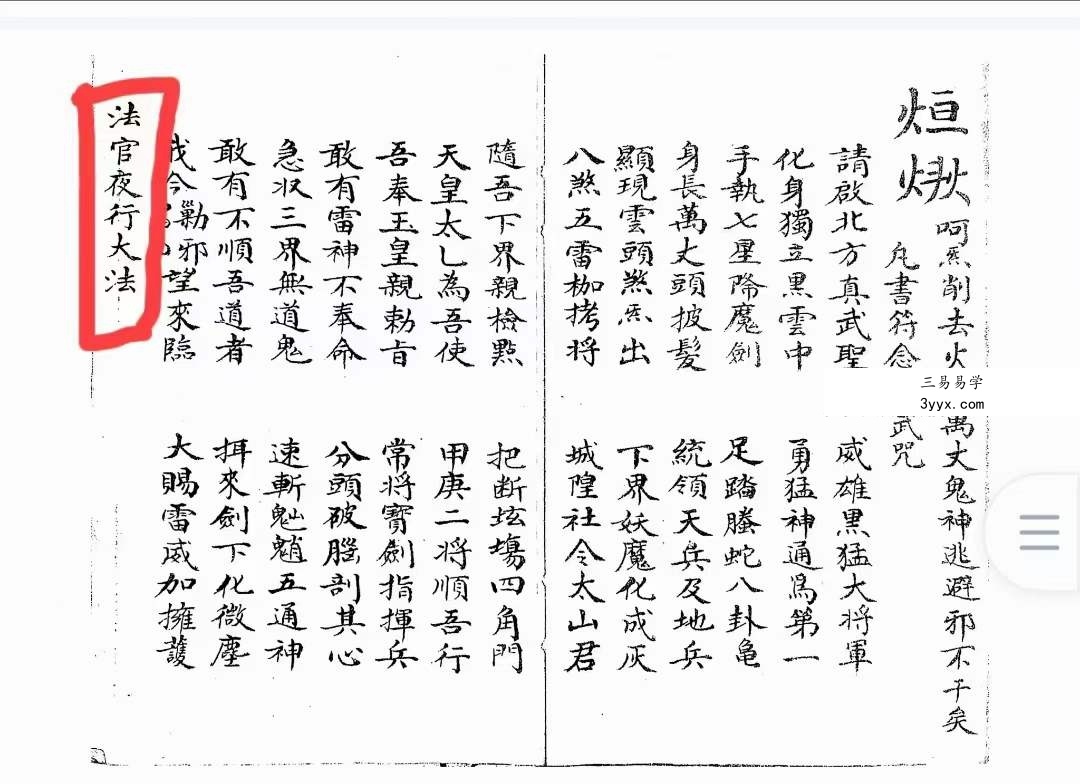 烜
呵炁削去火萬丈鬼神逃避邪不干矣
凡書符念武咒
請啟北方真武聖 威雄黑猛大將軍
化身獨立黑雲中 勇猛神通為第一
手執七星降魔劍 足踏螣蛇八卦龜
身長萬丈頭披髮 統領天兵及地兵
顯現雲頭煞炁出 下界妖魔化成灰
八煞五雷枷拷將 城隍社令太山君
隨吾下界親檢點 把斷坛場四角門
天皇太乚為吾使 甲庚二將順吾行
吾奉玉皇親勅旨 常將寶劍指揮兵
敢有雷神不奉命 分頭破腦剖其心
急収三界無道鬼 速斬魈五通神
敢有不順吾道者 拑來劍下化微塵
我今勦邪望來臨 大賜雷威加擁護
法官夜行大法
三易易学
3yyx.com